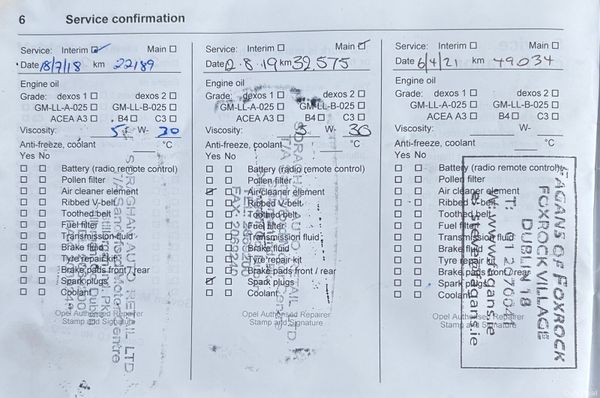 6 Service confirmation
Service: Interim Main
Date 18/7/18 km 22189
Engine oil
Grade: dexos 1 dexos 2
GM-LL-A-025 GM-LL-B-025
ACEA A3 B4 C3
Viscosity: 5 W- 30
Anti-freeze, coolant °C
Yes No
Battery (radio remote control)
Pollen filter
Air cleaner element
Ribbed V-belt
Toothed belt
Fuel filter
Transmission fluid
Brake fluid
Tyre repair kit
Brake pads front / rear
Spark plugs
Coolant
Opel Authorised Repairer
Stamp and Signature
Service: Interim Main
Date 12.8.19 km 32,575
Engine oil
Grade: dexos 1 dexos 2
GM-LL-A-025 GM-LL-B-025
ACEA A3 B4 C3
Viscosity: 5 W- 30
Anti-freeze, coolant °C
Yes No
Battery (radio remote control)
Pollen filter
Air cleaner element
Ribbed V-belt
Toothed belt
Fuel filter
Transmission fluid
Brake fluid
Tyre repair kit
Brake pads front / rear
Spark plugs
Coolant
Opel Authorised Repairer
Stamp and Signature
Service: Interim Main
Date 6/4/21 km 49034
Engine oil
Grade: dexos 1 dexos 2
GM-LL-A-025 GM-LL-B-025
ACEA A3 B4 C3
Viscosity: W-
Anti-freeze, coolant °C
Yes No
Battery (radio remote control)
Pollen filter
Air cleaner element
Ribbed V-belt
Toothed belt
Fuel filter
Transmission fluid
Brake fluid
Tyre repair kit
Brake pads front / rear
Spark plugs
Coolant
Opel Authorised Repairer
Stamp and Signature
FAGANS OF FOXROCK
FOXROCK VILLAGE
DUBLIN 18